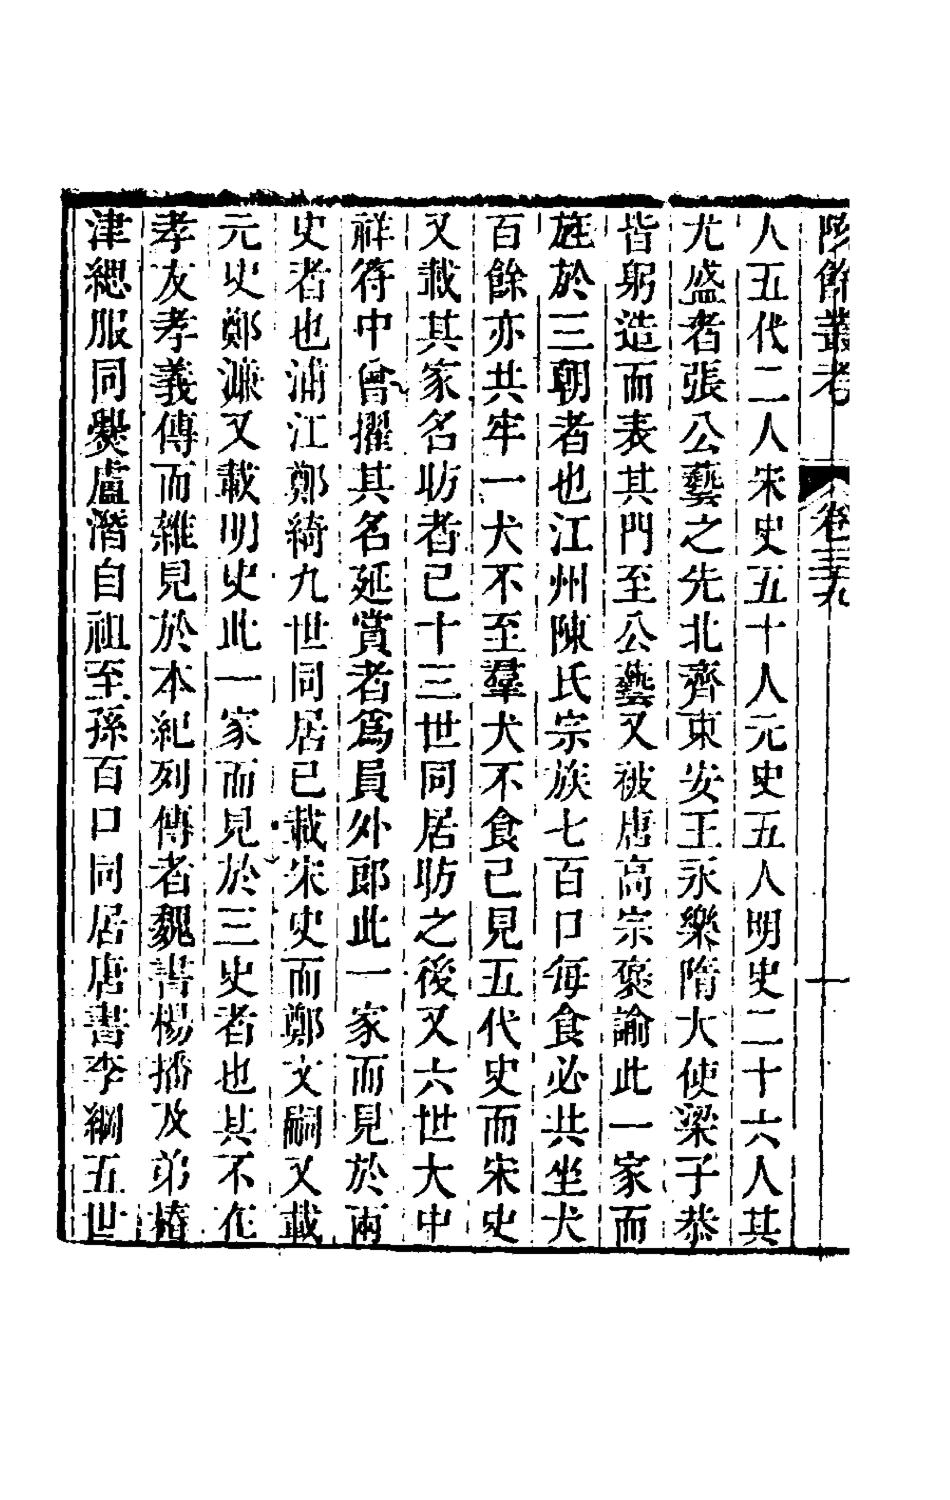 陔餘叢考 卷三十九 十
人五代二人宋史五十人元史五人明史二十六人其
尤盛者張公藝之先北齊東安王永樂隋大使梁子恭
皆躬造而表其門至公藝又被唐高宗褒諭此一家而
旌於三朝者也江州陳氏宗族七百口每食必共坐犬
百餘亦共牢一犬不至羣犬不食已見五代史而宋史
又載其家名昉者已十三世同居昉之後又六世大中
祥符中曾擢其名延賞者爲員外郎此一家而見於兩
史者也浦江鄭綺九世同居已載宋史而鄭文嗣又載
元史鄭濂又載明史此一家而見於三史者也其不在
孝友孝義傳而雜見於本紀列傳者魏書楊播及弟椿
津緦服同爨盧潛自祖至孫百口同居唐書李綱五世